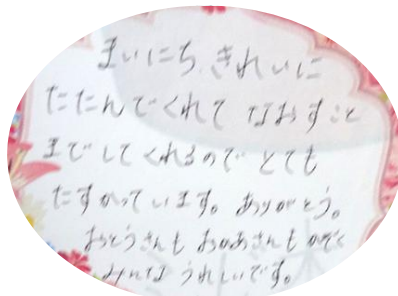 まいにち きれいに
たたんでくれて なおすこと
までしてくれるので とても
たすかっています。ありがとう。
おとうさんも おかあさんも かぞく
みんな うれしいです。